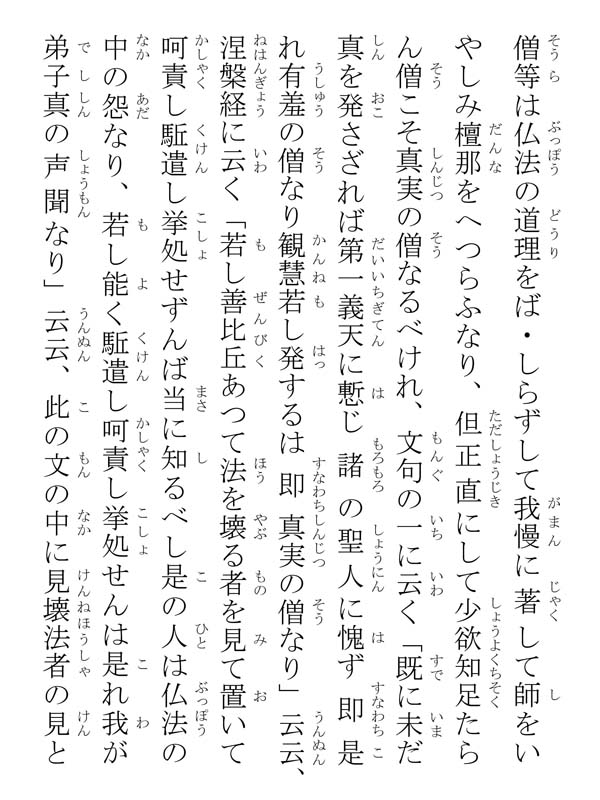 僧等は仏法の道理をば・しらずして我慢に著して師をい
やしみ檀那をへつらふなり、但正直にして少欲知足たら
ん僧こそ真実の僧なるべけれ、文句の一に云く「既に未だ
真を発さざれば第一義天に慙じ諸の聖人に愧ず即是
れ有羞の僧なり観慧若し発するは即真実の僧なり」云云、
涅槃経に云く「若し善比丘あつて法を壊る者を見て置いて
呵責し駈遣し挙処せずんば当に知るべし是の人は仏法の
中の怨なり、若し能く駈遣し呵責し挙処せんは是れ我が
弟子真の声聞なり」云云、此の文の中に見壊法者の見と